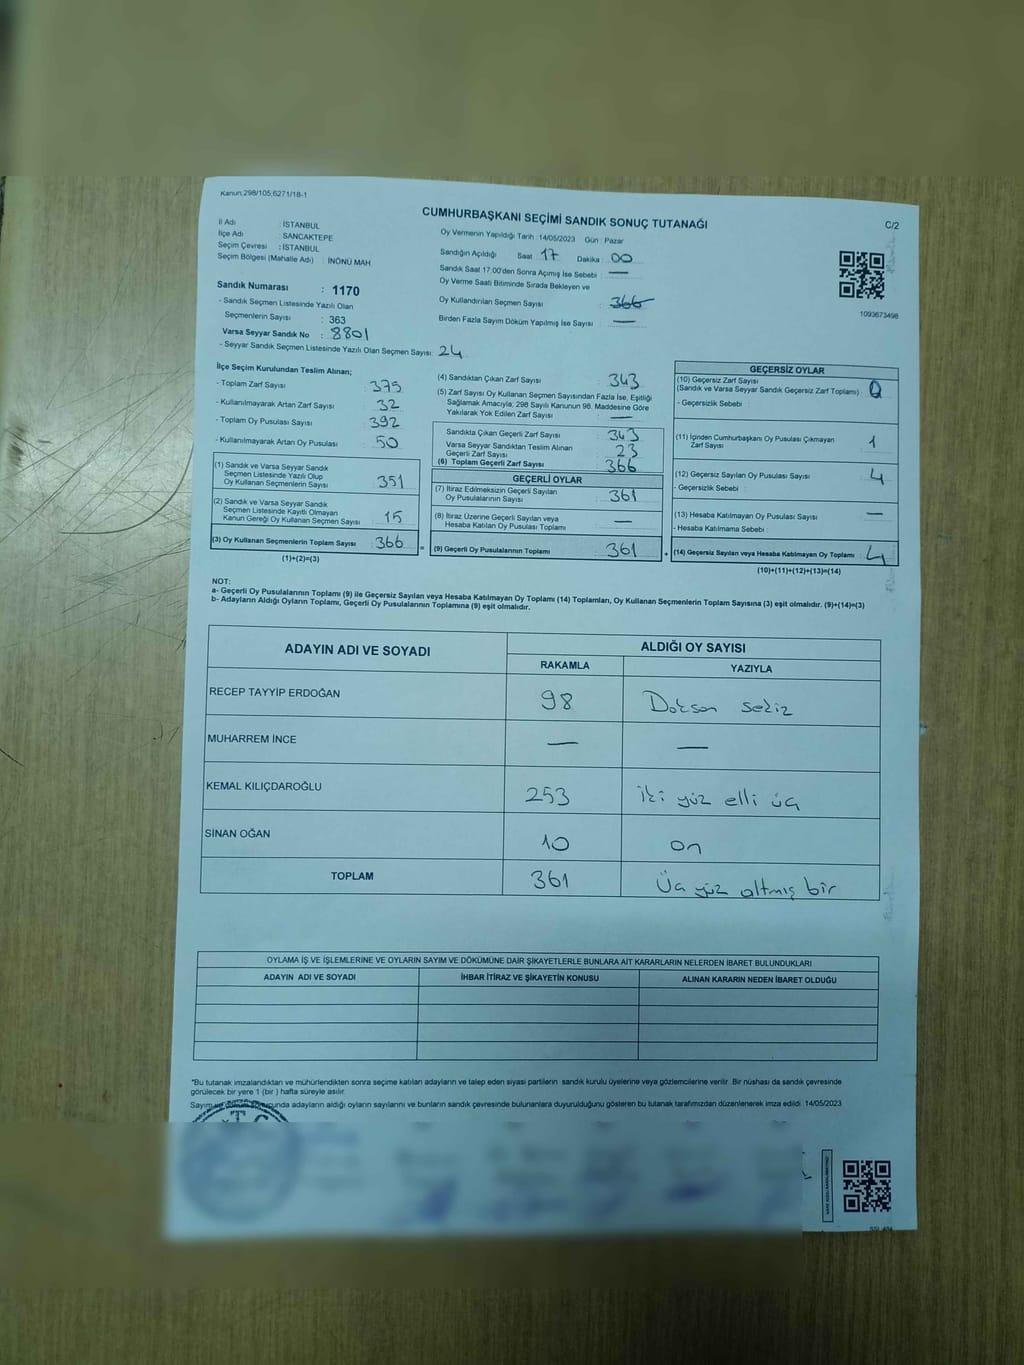 Kanun:298/105;6271/18-1
CUMHURBAŞKANI SEÇİMİ SANDIK SONUÇ TUTANAĞI
C/2
İl Adı : İSTANBUL
İlçe Adı : SANCAKTEPE
Seçim Çevresi : İSTANBUL
Seçim Bölgesi (Mahalle Adı) : İNÖNÜ MAH
Sandık Numarası : 1170
- Sandık Seçmen Listesinde Yazılı Olan
Seçmenlerin Sayısı : 363
Varsa Seyyar Sandık No : 8801
- Seyyar Sandık Seçmen Listesinde Yazılı Olan Seçmen Sayısı: 24
Oy Vermenin Yapıldığı Tarih : 14/05/2023 Gün : Pazar
Sandığın Açıldığı Saat : 17 Dakika : 00
Sandık Saat 17:00'den Sonra Açılmış İse Sebebi : —
Oy Verme Saati Bitiminde Sırada Bekleyen ve
Oy Kullandırılan Seçmen Sayısı : 366
Birden Fazla Sayım Döküm Yapılmış İse Sayısı : —
1093673498
İlçe Seçim Kurulundan Teslim Alınan;
- Toplam Zarf Sayısı : 375
- Kullanılmayarak Artan Zarf Sayısı : 32
- Toplam Oy Pusulası Sayısı : 392
- Kullanılmayarak Artan Oy Pusulası : 50
(1) Sandık ve Varsa Seyyar Sandık
Seçmen Listesinde Yazılı Olup
Oy Kullanan Seçmenlerin Sayısı : 351
(2) Sandık ve Varsa Seyyar Sandık
Seçmen Listesinde Kayıtlı Olmayan
Kanun Gereği Oy Kullanan Seçmen Sayısı : 15
(3) Oy Kullanan Seçmenlerin Toplam Sayısı : 366
(1)+(2)=(3)
(4) Sandıktan Çıkan Zarf Sayısı : 343
(5) Zarf Sayısı Oy Kullanan Seçmen Sayısından Fazla İse, Eşitliği
Sağlamak Amacıyla; 298 Sayılı Kanunun 98. Maddesine Göre
Yakılarak Yok Edilen Zarf Sayısı : —
Sandıkta Çıkan Geçerli Zarf Sayısı : 343
Varsa Seyyar Sandıktan Teslim Alınan
Geçerli Zarf Sayısı : 23
(6) Toplam Geçerli Zarf Sayısı : 366
GEÇERLİ OYLAR
(7) İtiraz Edilmeksizin Geçerli Sayılan
Oy Pusulalarının Sayısı : 361
(8) İtiraz Üzerine Geçerli Sayılan veya
Hesaba Katılan Oy Pusulası Toplamı : —
= (9) Geçerli Oy Pusulalarının Toplamı : 361
GEÇERSİZ OYLAR
(10) Geçersiz Zarf Sayısı
(Sandık ve Varsa Seyyar Sandık Geçersiz Zarf Toplamı) : 0
- Geçersizlik Sebebi :
(11) İçinden Cumhurbaşkanı Oy Pusulası Çıkmayan
Zarf Sayısı : 1
(12) Geçersiz Sayılan Oy Pusulası Sayısı : 4
- Geçersizlik Sebebi :
(13) Hesaba Katılmayan Oy Pusulası Sayısı : —
- Hesaba Katılmama Sebebi :
+ (14) Geçersiz Sayılan veya Hesaba Katılmayan Oy Toplamı : 4
(10)+(11)+(12)+(13)=(14)
NOT:
a- Geçerli Oy Pusulalarının Toplamı (9) ile Geçersiz Sayılan veya Hesaba Katılmayan Oy Toplamı (14) Toplamları, Oy Kullanan Seçmenlerin Toplam Sayısına (3) eşit olmalıdır. (9)+(14)=(3)
b- Adayların Aldığı Oyların Toplamı, Geçerli Oy Pusulalarının Toplamına (9) eşit olmalıdır.
ADAYIN ADI VE SOYADI ALDIĞI OY SAYISI
RAKAMLA YAZIYLA
RECEP TAYYİP ERDOĞAN 98 Doksan sekiz
MUHARREM İNCE — —
KEMAL KILIÇDAROĞLU 253 iki yüz elli üç
SİNAN OĞAN 10 on
TOPLAM 361 Üç yüz altmış bir
OYLAMA İŞ VE İŞLEMLERİNE VE OYLARIN SAYIM VE DÖKÜMÜNE DAİR ŞİKAYETLERLE BUNLARA AİT KARARLARIN NELERDEN İBARET BULUNDUKLARI
ADAYIN ADI VE SOYADI İHBAR İTİRAZ VE ŞİKAYETİN KONUSU ALINAN KARARIN NEDEN İBARET OLDUĞU
*Bu tutanak imzalandıktan ve mühürlendikten sonra seçime katılan adayların ve talep eden siyasi partilerin sandık kurulu üyelerine veya gözlemcilerine verilir. Bir nüshası da sandık çevresinde
görülecek bir yere 1 (bir) hafta süreyle asılır.
adayların aldığı oyların sayılarını ve bunların sandık çevresinde bulunanlara duyurulduğunu gösteren bu tutanak tarafımızdan düzenlenerek imza edildi. 14/05/2023
T.C.